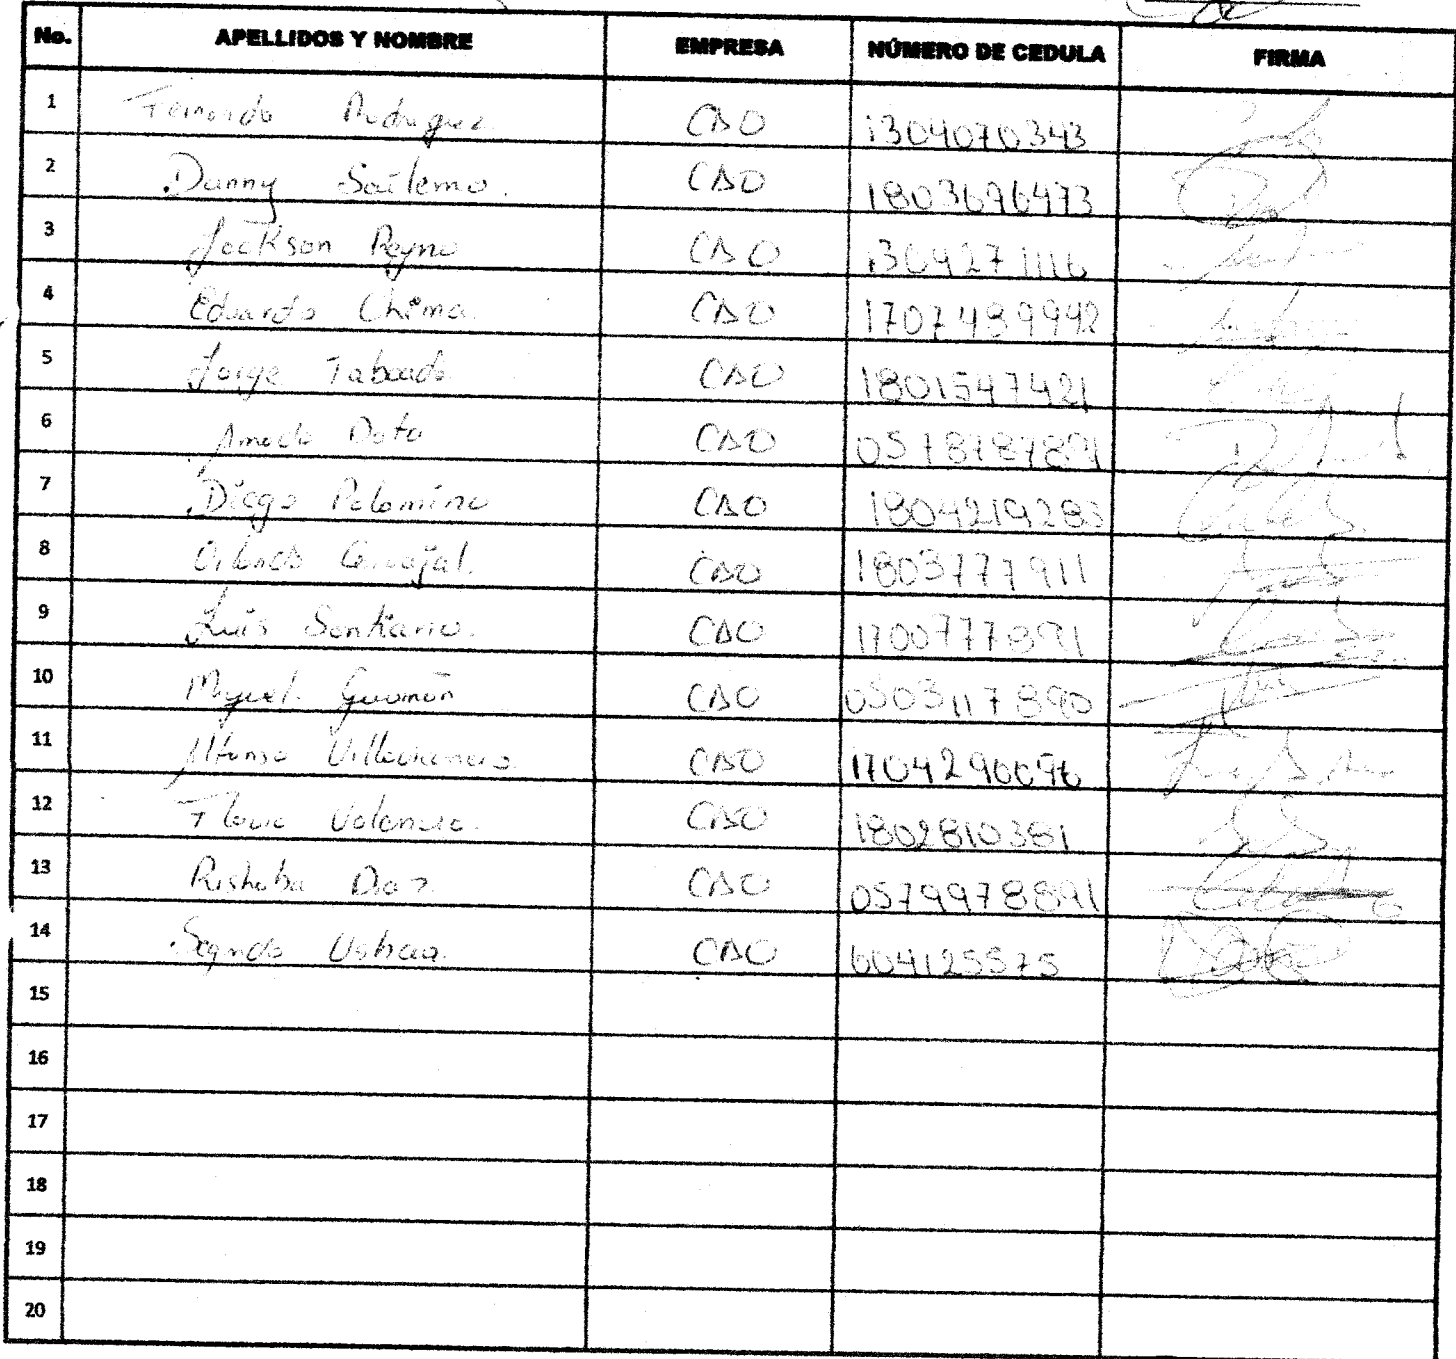 No. APELLIDOS Y NOMBRE EMPRESA NÚMERO DE CEDULA FIRMA
1 Fernando Rodriguez CBO 1304070343
2 Danny Sailema. CBO 1803696473
3 Jackson Reyna CBO 1304271116
4 Eduardo Chima. CBO 1707489992
5 Jorge Taboada CBO 1801547421
6 Amado Data CBO 0578787891
7 Diego Palomino CBO 1804219283
8 Orlando Carvajal. CBO 1803777911
9 Luis Santiario. CBO 1700777891
10 Miguel Guamán CBO 0503117890
11 Alfonso Villavicencio. CBO 1704290096
12 Flavio Valencia. CBO 1802810381
13 Diaz CBO 0579978891
14 Segundo CBO 604125575
15
16
17
18
19
20